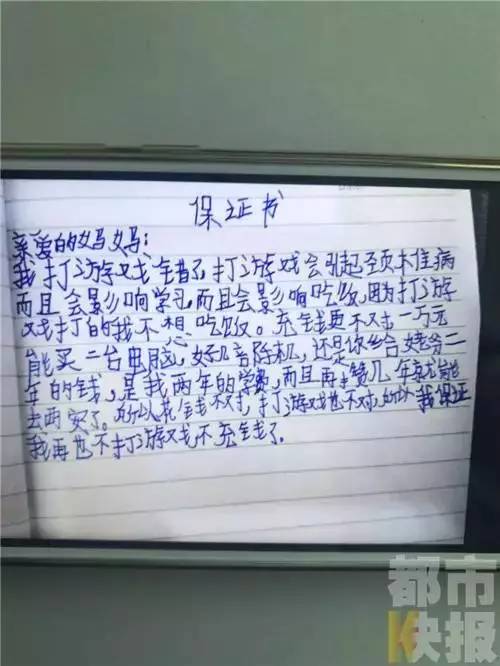 保证书
亲爱的妈妈：
我打游戏错了，打游戏会引起颈木隹病
而且会影响学习而且会影响吃饭，因为打游
戏打的我不想吃饭。充钱更不对一万元
能买二台电脑，好几台除机，还是你给姥爷二
年的钱，是我两年的学费，而且再赞几年就能
去西安了。所以花钱不对，打游戏也不对，所以我保证
我再也不打游戏不充钱了。
都市
快报